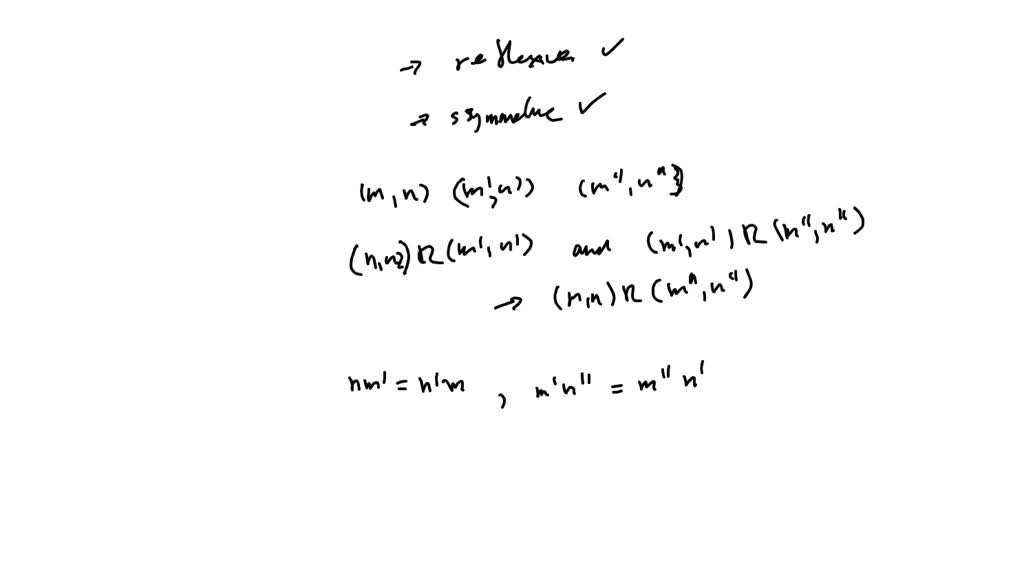 → reflexive ✓
→ symmetric ✓
(m,n) (m',n') (m'',n''}
(n,n) R (m',n') and (m',n') R (m'',n'')
→ (n,n) R (m'',n'')
nm' = n'm , m'n'' = m''n'